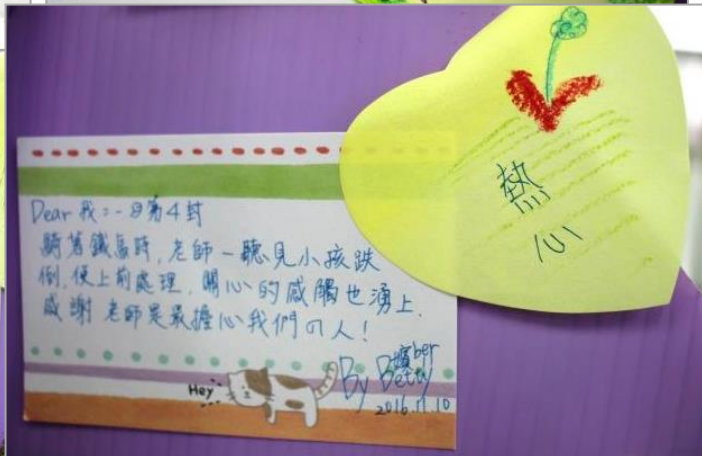 Dear 我:-日第4封
騎著鐵馬時,老師一聽見小孩跌
倒,便上前處理,關心的感觸也湧上.
感謝 老師是最擔心我們的人!
Hey
By Betty
2016.11.10
熱
心